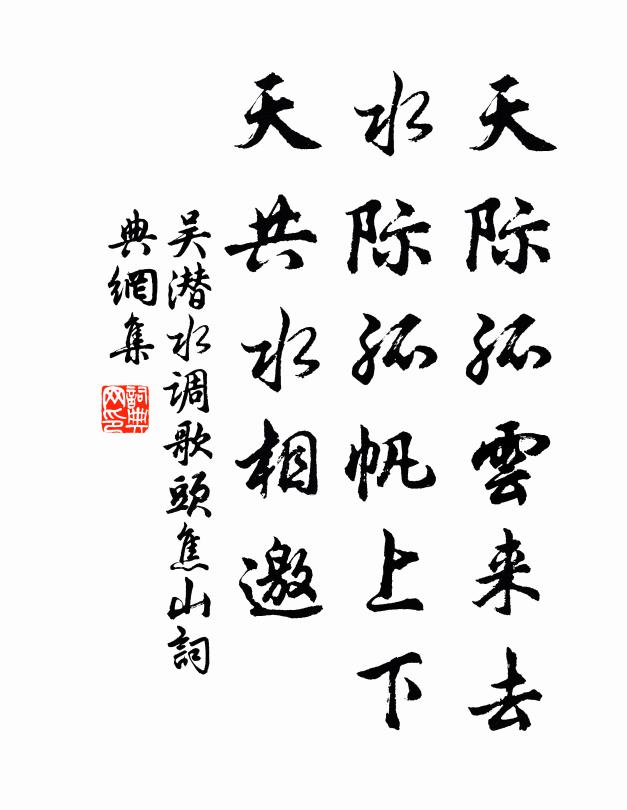 天际孤雲来去
水际孤帆上下
天共水相邀
吴潜水调歌頭焦山詞
典網集
詞典
网印